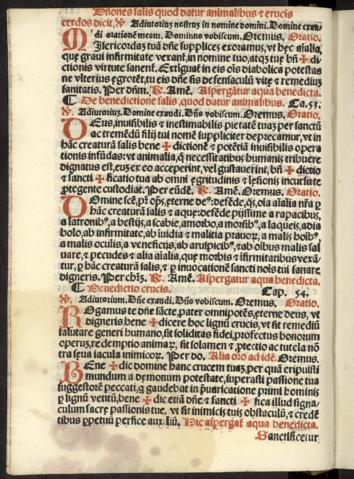 Bn̄ones salis quod datur animalibus ⁊ crucis
cerdos dicit. ℣ Adiutoriũ nostrũ in nomine domini. Domine exau
di orationẽ meam. Dominus vobiscum. Oremus. Oratio.
Misericordiaʒ tuã dn̄e supplices exoramus, vt hec aĩalia,
que graui infirmitate vexant, in nomine tuo, atqʒ tue bn̄ ✠ di
ctionis virtute sanent. Extinguat̃ in eis oĩs diabolica potestas
ne vlterius egrotẽt, tu eis dn̄e sis defensacułũ vite ⁊ remediuʒ
sanitatis. Per dn̄m. ℟. Amẽ. Aspergãtur aqua benedicta.
¶ De benedictione salis, quod datur animalibus. Ca. 53.
℣ Adiutoriuʒ. Domine exaudi. Dn̄s vobiscum. Oremus. Oratio.
Deus, inuisibilis ⁊ inestimabilis pietatẽ tuaʒ per sanctũ
ac tremẽdũ filij tui nomẽ suppliciter deprecamur, vt in
hãc creaturã salis bene ✠ dictionẽ ⁊ potẽtiã inuisibilis opera
tionis infũdas: vt animalia, q̃ necessitatibus humanis tribuere
dignatus est, cuʒ ex eo acceperint, vel gustauerint, bn̄ ✠ dictio
⁊ sancti ✠ ficatio tua ab omni egritudinis ⁊ lesionis incursu te
protegente custodiat. Per eũdẽ. ℟. Amẽ. Oremus. Oratio.
Domine scẽ, pr̃ op̃s, eterne de⁹: defẽde, q̃s, oĩa aĩalia nr̃a p
hãc creaturã salis ⁊ aque: defẽde pijssime a rapacibus,
a latronib⁹, a bestijs, a scabie, a morbo, a morsib⁹, a laqueis, a dia
bolo, ab infirmitate, ab inuidia ⁊ malitia prauoꝝ, a malis hoĩb⁹,
a malis oculis, a veneficijs, ab aruspicib⁹, ⁊ ab oĩbus malis sal
uare, ⁊ pecudes ⁊ alia aĩalia, que morbis ⁊ ĩfirmitatibus vexã
tur, p hãc creaturã salis, ⁊ p inuocationẽ sancti noĩs tui sanare
digneris. Per chr̃m. ℟. Amẽ. Aspergãtur aqua benedicta.
¶ Benedictio crucis. Cap. 54.
℣. Adiutorium. Dn̄e exaudi. Dn̄s vobiscum. Oremus. Oratio.
Rogamus te dn̄e sãcte, pater omnipotẽs, eterne deus, vt
digneris bene ✠ dicere hoc lignũ crucis, vt sit remediũ
salutare generi humano, sit soliditas fidei, profectus bonorum
operũ, redemptio animaꝝ, sit solamen ⁊ ꝓtectio ac tutela cõ
tra seua iacula inimicoꝝ. Per do. Alia oro ad idẽ. Oremus.
Bene ✠ dic domine hanc crucem tuaʒ, per quã eripuisti
mundum a demonum potestate, superasti passione tua
suggestorẽ peccati, q̃ gaudebat in p̃uaricatione primi hominis
p lignũ vetitũ, bene ✠ dic etiã dn̄e ⁊ sancti ✠ fica illud signa-
culum sacre passionis tue, vt sit inimicis tuis obstaculũ, ⁊ credẽ
tibus ppetuũ perfice auxiliũ. Hic aspergat̃ aqua benedicta.
Sanctificetur